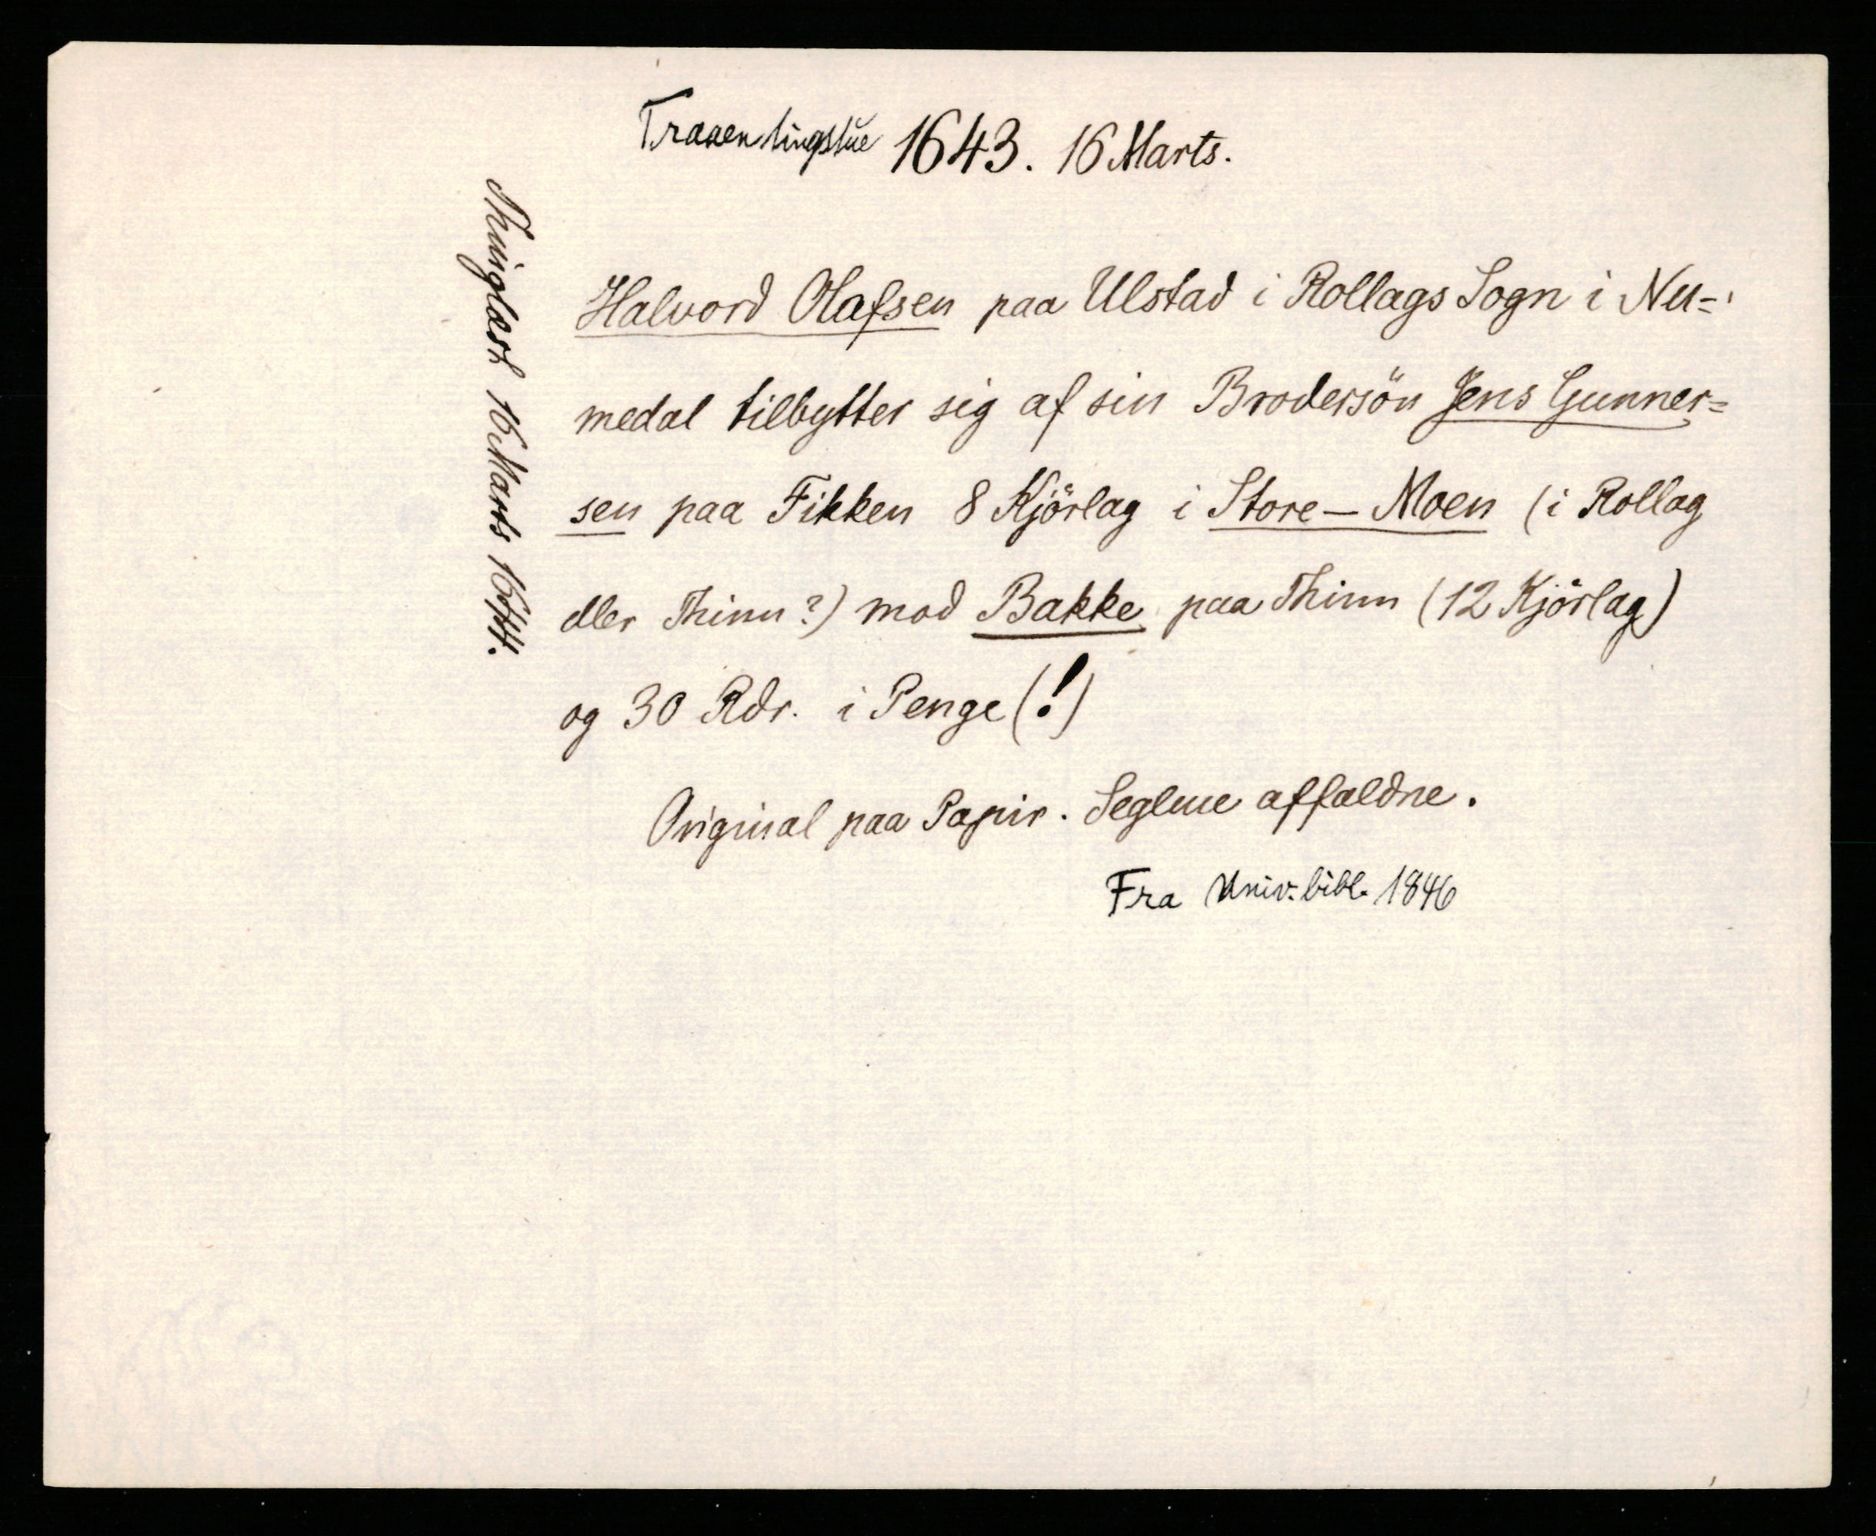 Traaen tingstue 1643. 16 Marts.
Thinglæst 16 Marts 1644.
Halvord Olafsen paa Ulstad i Rollags Sogn i Nu-
medal tilbytter sig af sin Brodersön Jens Gunner-
sen paa Fikken 8 Kjörlag i Store-Moen (i Rollag
eller Thinn?) mod Bakke paa Thinn (12 Kjörlag)
og 30 Rdr. i Penge (!)
Original paa Papir. Seglene affaldne.
Fra Univ. bibl. 1846